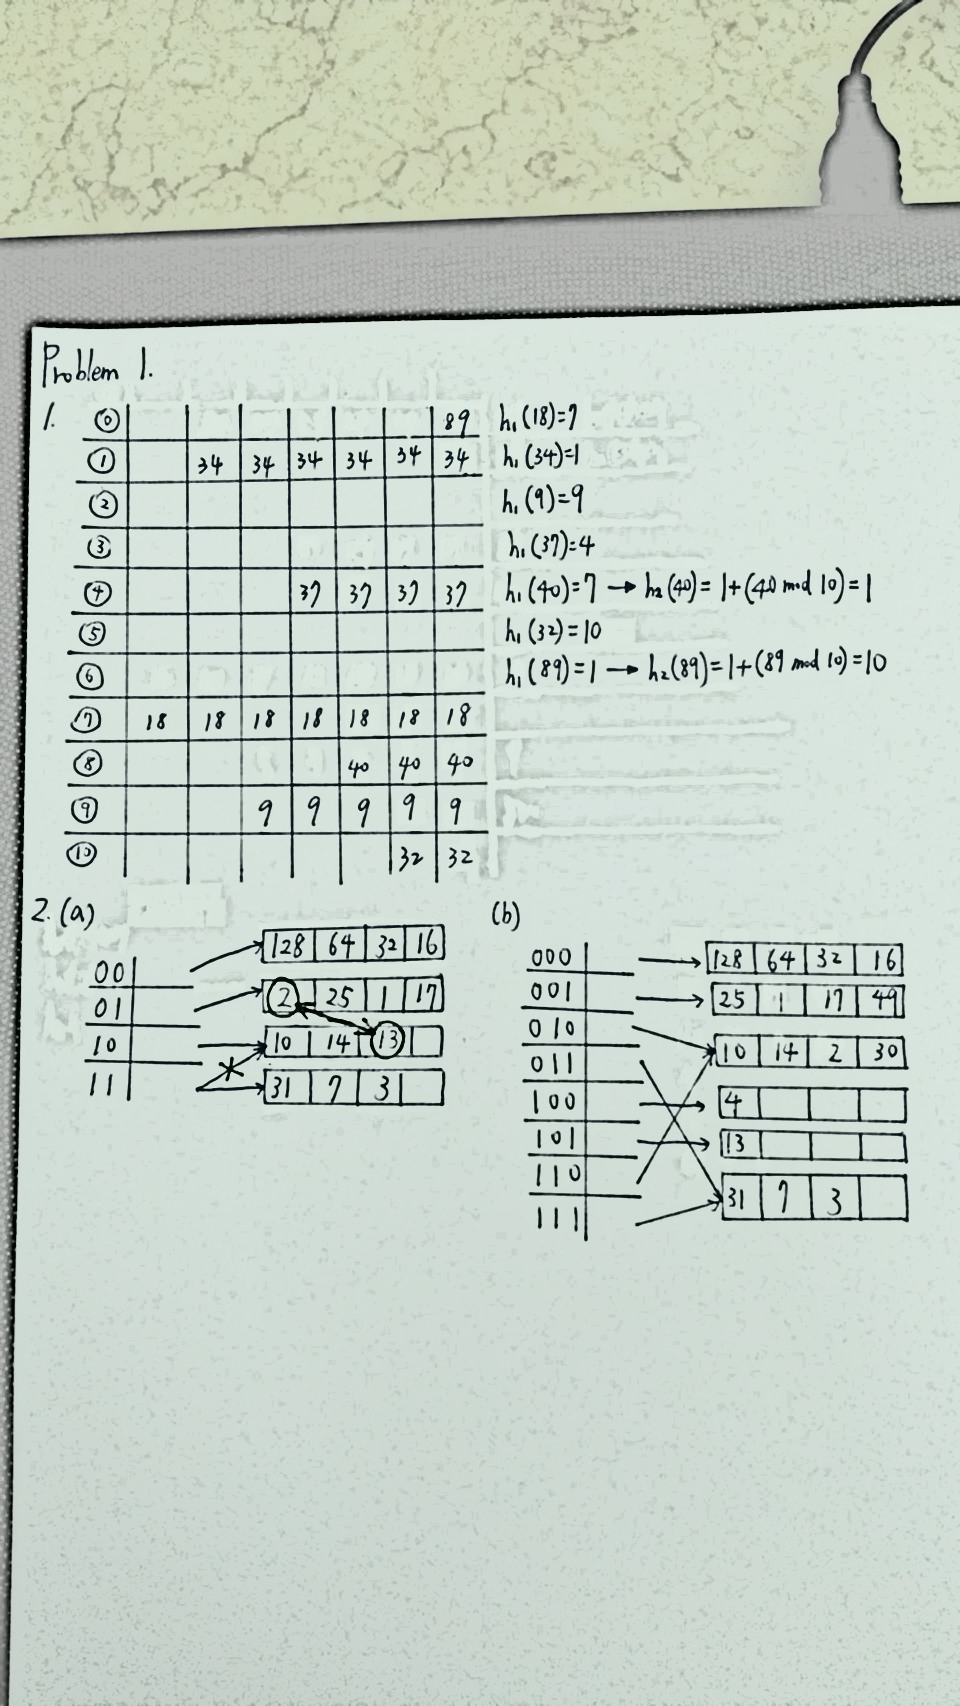 Problem 1.
1.
⓪ 89
① 34 34 34 34 34 34
②
③
④ 37 37 37 37
⑤
⑥
⑦ 18 18 18 18 18 18 18
⑧ 40 40 40
⑨ 9 9 9 9 9
⑩ 32 32
h₁(18)=7
h₁(34)=1
h₁(9)=9
h₁(37)=4
h₁(40)=7 → h₂(40)=1+(40 mod 10)=1
h₁(32)=10
h₁(89)=1 → h₂(89)=1+(89 mod 10)=10
2. (a)
00
01
10
11
128 64 32 16
2 25 1 17
10 14 13
31 7 3
(b)
000
001
010
011
100
101
110
111
128 64 32 16
25 1 17 49
10 14 2 30
4
13
31 7 3